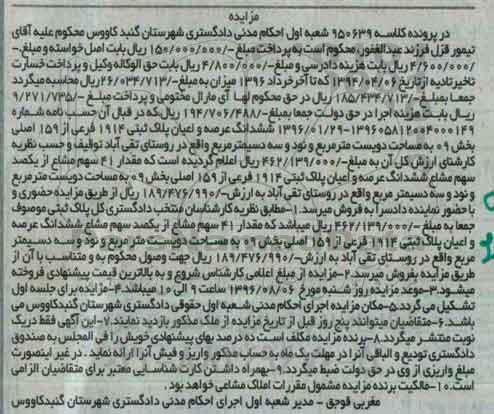 مزایده
در پرونده کلاسه ۹۵۰۶۳۹ شعبه اول احکام مدنی دادگستری شهرستان گنبد کاووس محکوم علیه آقای
تیمور قزل فرزند عبدالغفور، محکوم است به پرداخت مبلغ -/۱۵۰/۰۰۰/۰۰۰ ریال بابت اصل خواسته و مبلغ-
/۴/۶۰۰/۰۰۰ ریال بابت هزینه دادرسی و مبلغ -/۴/۸۰۰/۰۰۰ ریال بابت حق الوکاله وکیل و پرداخت خسارت
تاخیر تادیه از تاریخ ۱۳۹۴/۰۴/۰۶ که تا آخر خرداد ۱۳۹۶ میزان به مبلغ-/۲۶/۰۳۴/۷۱۳ ریال محاسبه میگردد
جمعا بمبلغ-/۱۸۵/۴۳۴/۷۱۳ ریال در حق محکوم لها آی مارال مختومی و پرداخت مبلغ -/۹/۲۷۱/۷۳۵
ریال بابت هزینه اجرا در حق دولت جمعا بمبلغ-/۱۹۴/۷۰۶/۴۸۸ ریال،که در قبال آن حسب نامه شماره
۱۳۹۶/۰۱/۲۹-۱۳۹۶۰۵۸۱۲۰۰۴۰۰۰۱۴۹ ششدانگ عرصه و اعیان پلاک ثبتی ۱۹۱۴ فرعی از ۱۵۹ اصلی
بخش ۰۹ به مساحت دویست مترمربع و نود و سه دسیمترمربع واقع در روستای تقی آباد توقیف و حسب نظریه
کارشناس ارزش کل آن به مبلغ -/۴۶۲/۱۳۹/۰۰۰ ریال اعلام گردیده است که مقدار ۴۱ سهم مشاع از یکصد
سهم مشاع ششدانگ عرصه و اعیان پلاک ثبتی ۱۹۱۴ فرعی از ۱۵۹ اصلی بخش ۰۹ به مساحت دویست مترمربع
و نود و سه دسیمتر مربع واقع در روستای تقی آباد به ارزش-/۱۸۹/۴۷۶/۹۹۰ ریال از طریق مزایده حضوری و
با حضور نماینده دادسرا به فروش میرسد.۱-مطابق نظریه کارشناسان منتخب دادگستری کل پلاک ثبتی موصوف
جمعا به مبلغ -/۴۶۲/۱۳۹/۰۰۰ ریال میباشد که مقدار ۴۱ سهم مشاع از یکصد سهم مشاع ششدانگ عرصه
و اعیان پلاک ثبتی ۱۹۱۴ فرعی از ۱۵۹ اصلی بخش ۰۹ به مساحت دویست متر مربع و نود و سه دسیمتر
مربع واقع در روستای تقی آباد به ارزش-/۱۸۹/۴۷۶/۹۹۰ ریال جهت وصول محکوم به و متناسب با آن از
طریق مزایده بفروش میرسد.۲-مزایده از مبلغ اعلامی کارشناس شروع و به بالاترین قیمت پیشنهادی فروخته
میشود.۳-موعد مزایده روز شنبه مورخ ۱۳۹۶/۰۸/۰۶ ساعت ۹ الی ۱۰ میباشد.۴-مزایده برای جلسه اول
تشکیل می گردد.۵-مکان مزایده اجرای احکام مدنی شعبه اول حقوقی دادگستری شهرستان گنبدکاووس می
باشد.۶-متقاضیان میتوانند پنج روز قبل از تاریخ مزایده از ملک مذکور بازدید نمایند.۷-این آگهی فقط دریک
نوبت منتشر میگردد.۸-برنده مزایده مکلف است ده درصد بهای پیشنهادی خویش را فی المجلس به صندوق
دادگستری تودیع و الباقی آنرا در مهلت یک ماه به حساب مذکور واریز و فیش آنرا ارائه نماید . در غیر اینصورت
مبلغ واریزی از وی در حق دولت ضبط میگردد.۹-بهمراه داشتن کارت شناسایی معتبر برای متقاضیان الزامی
است.۱۰-مالکیت برنده مزایده مشمول مقررات املاک مشاعی خواهد بود .
مغربی قوجق - مدیر شعبه اول اجرای احکام مدنی دادگستری شهرستان گنبدکاووس